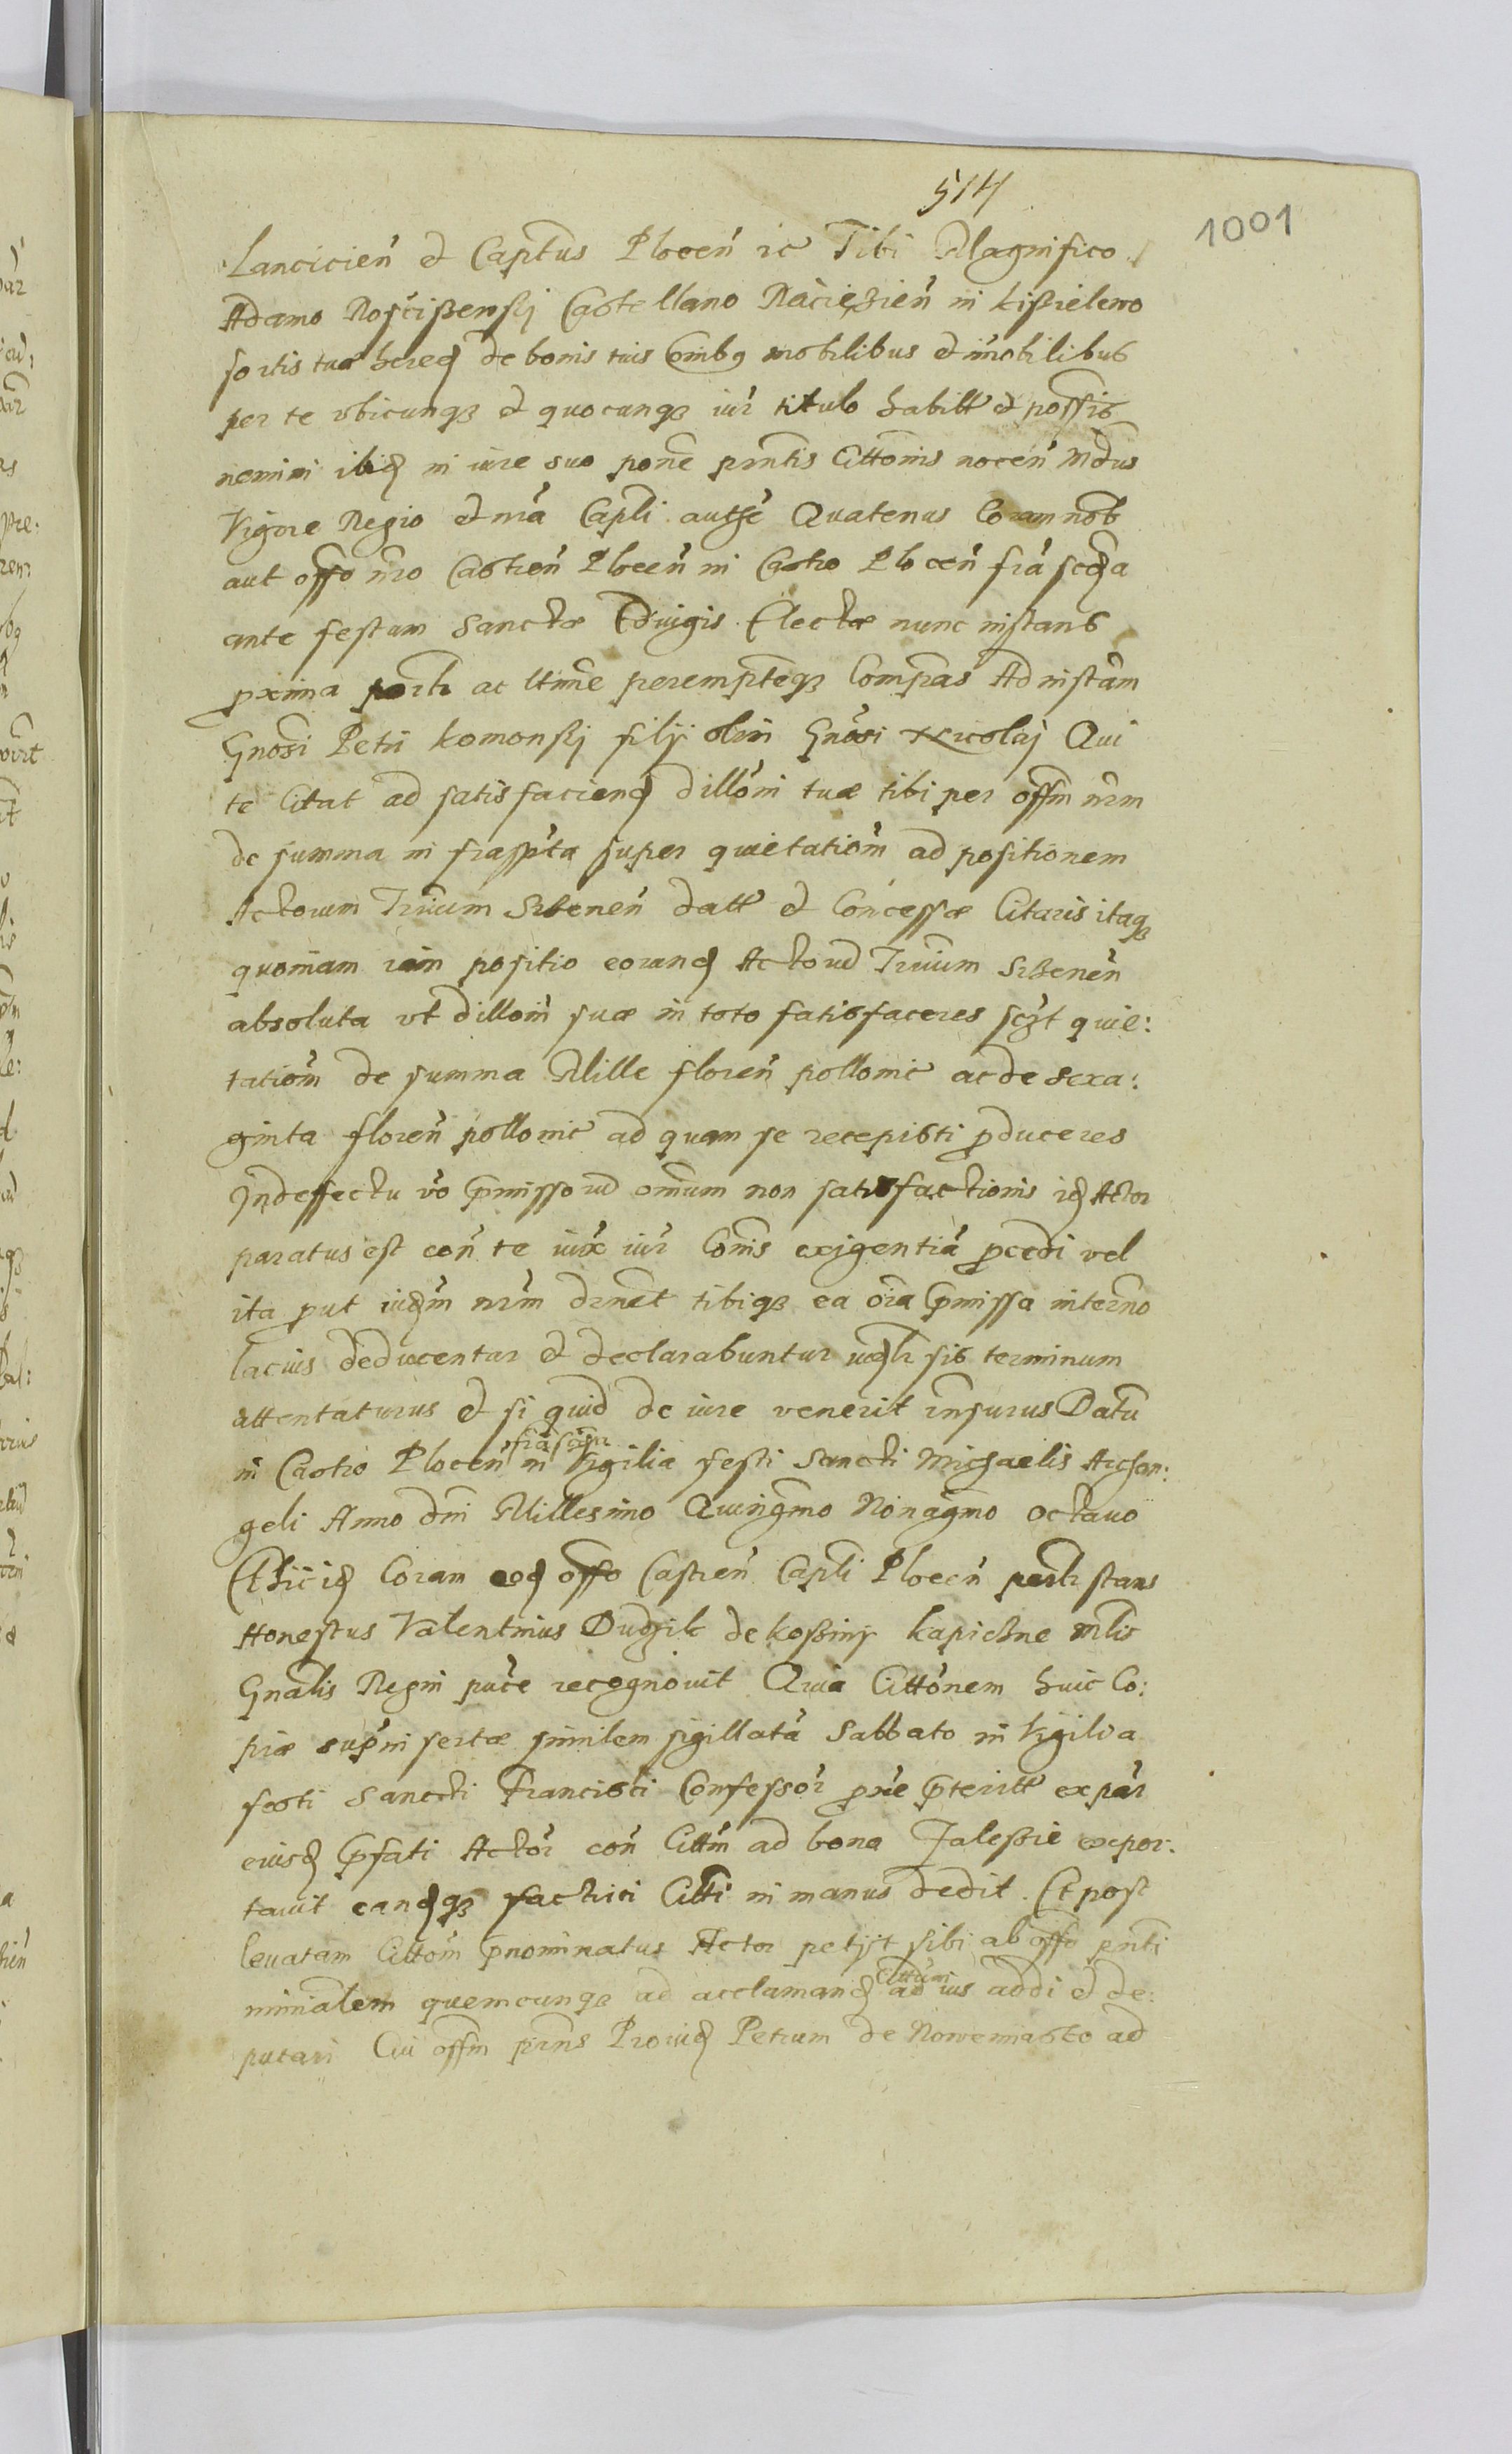 514
1001
Lancicien̄ et Capt̄us Plocen̄ etc Tibi Magnifico
Adamo Rosciszewskj Castellano Raciezien̄ in kisielewo
sortis tuæ hered de bonis tuis omnibus mobilibus et im̄obilibus
per te vbicunqȝ et quocunqȝ iur̄ titulo habitt et possis
nemini ibid in iure suo pone pn̄tis Citton̄is nocen̄ Mdūs
Vigore Regio et nr̄a Capli autħe Quatenus Coram nob
aut offo nr̄o Castren̄ Plocen̄ in Castro Plocen̄ fr̄a scd̄a
ante festum Sanctæ Edwigis Electæ nunc instans
proxima per̄tr ac ltim̄e perempt̄eqȝ Compr̄as Ad instām
Gn̄osi Petri komonskj filij olim Gn̄osi Nicolaj Qui
te Citat ad satisfaciend dillōni tuæ tibi per offm nr̄m
de summa infrasp̄ta super quietatiōm ad positionem
Actorum Tr̄iium Srbenen̄ datt et Concessæ Citaris itaqȝ
quoniam iam positio eorund Actorū Tr̄iium Srbenen̄
absoluta vt dillōni suæ in toto satisfaceres sc̄zt quie:
tatiōm de summa Mille floren̄ pollonic̄ ac de sexa:
ginta floren̄ pollonic̄ ad quam se recepisti p̱duceres
In deffectu vo p̄missorū omnium non satisfactionis id Actor
paratus est con̄ te iux̄ iur̄ Com̄is exigentiā p̱cedi vel
ita p̱ut iud̄m nr̄m dr̄net tibiqȝ ea om̄ia p̄missa in termo
lacius deducentur et declarabuntur sis terminum
attentaturus et si quid de iure venerit rn̄surus Datū
in Castro Plocen̄ in Vigilia festi Sancti Michaelis Archan:
geli Anno Dn̄i Millesimo Quingmo Nonagmo octauo
Et hic id Coram eod offo Castren̄ Capli Plocen̄ per̄tr stans
Honestus Valentinus Dudzik de kossiny kapichne mltis
Gn̄alis Regni puc̄e recognouit Quia Cittōnem huic Co:
piæ sup̱insertæ similem sigillatā Sabbato in Vigilia
festi Sancti Francisci Confessor̄ prox̄e p̄teritt ex par̄
eiusd p̄fati Actor̄ con̄ Cittm̄ ad bona Jalessie expor:
tauit eandqȝ factrici Citti in manus dedit. Et post
leuatam Cittōm p̄nominatus Actor petijt sibi ab offo pn̄ti
minial̄em quemcunqȝ ad acclamand cittum ad ius addi et de:
putari Cui offm prn̄s Prouid Petrum de Nowemiasto ad